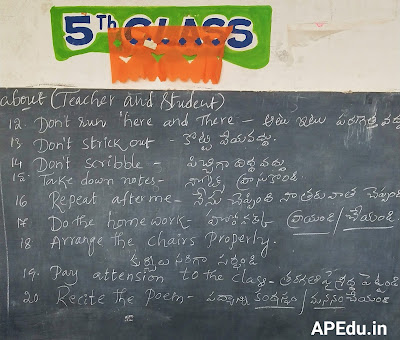 5Th CLASS
about (Teacher and Student)
12. Don't run 'here and There - అటు ఇటు పరుగెత్త వద్దు
13 Don't strick out - కొట్టి వేయవద్దు.
14 Don't scribble - పిచ్చిగా దిద్ద వద్దు
15. Take down notes - నోట్స్ వ్రాసుకొండి.
16 Repeat after me - నేను చెప్పింది నా తరువాత చెప్పండి
17 Do the home work - హోంవర్క్ (వ్రాయండి / చేయండి.
18 Arrange the chairs Properly.
కుర్చీలు సరిగా సర్దండి
19. Pay attension to the class - తరగతిపై శ్రద్ధ పెట్టండి
20 Recite the Poem - పద్యాన్ని కంఠస్థం / మననం చేయండి
APEdu.in